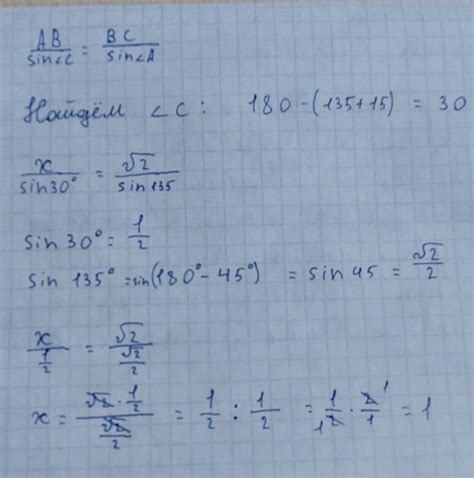 AB/sin∠C = BC/sin∠A
Найдём ∠C: 180-(135+15) = 30
x/sin30° = √2/sin135
sin30° = 1/2
sin 135° = sin(180°-45°) = sin 45 = √2/2
x/(1/2) = √2/(√2/2)
x = (√2 · 1/2)/(√2/2) = 1/2 : 1/2 = 1/2 · 2/1 = 1